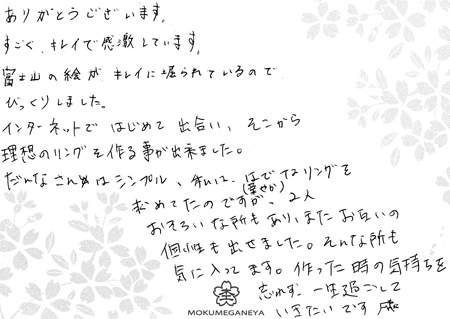 ありがとうございます。
すごく、キレイで感激しています。
富士山の絵が、キレイに掘られているので
びっくりしました。
インターネットで はじめて 出合い、そこから
理想のリングを作る事が出来ました。
だんなさんはシンプル、私は、はでなリングを
(華やか)
求めてたのですが、2人
おそろいな所もあり、またお互いの
個性も出せました。そんな所も
気に入ってます。作った時の気持ちを
忘れず、一生過ごして
いきたいです
MOKUMEGANEYA